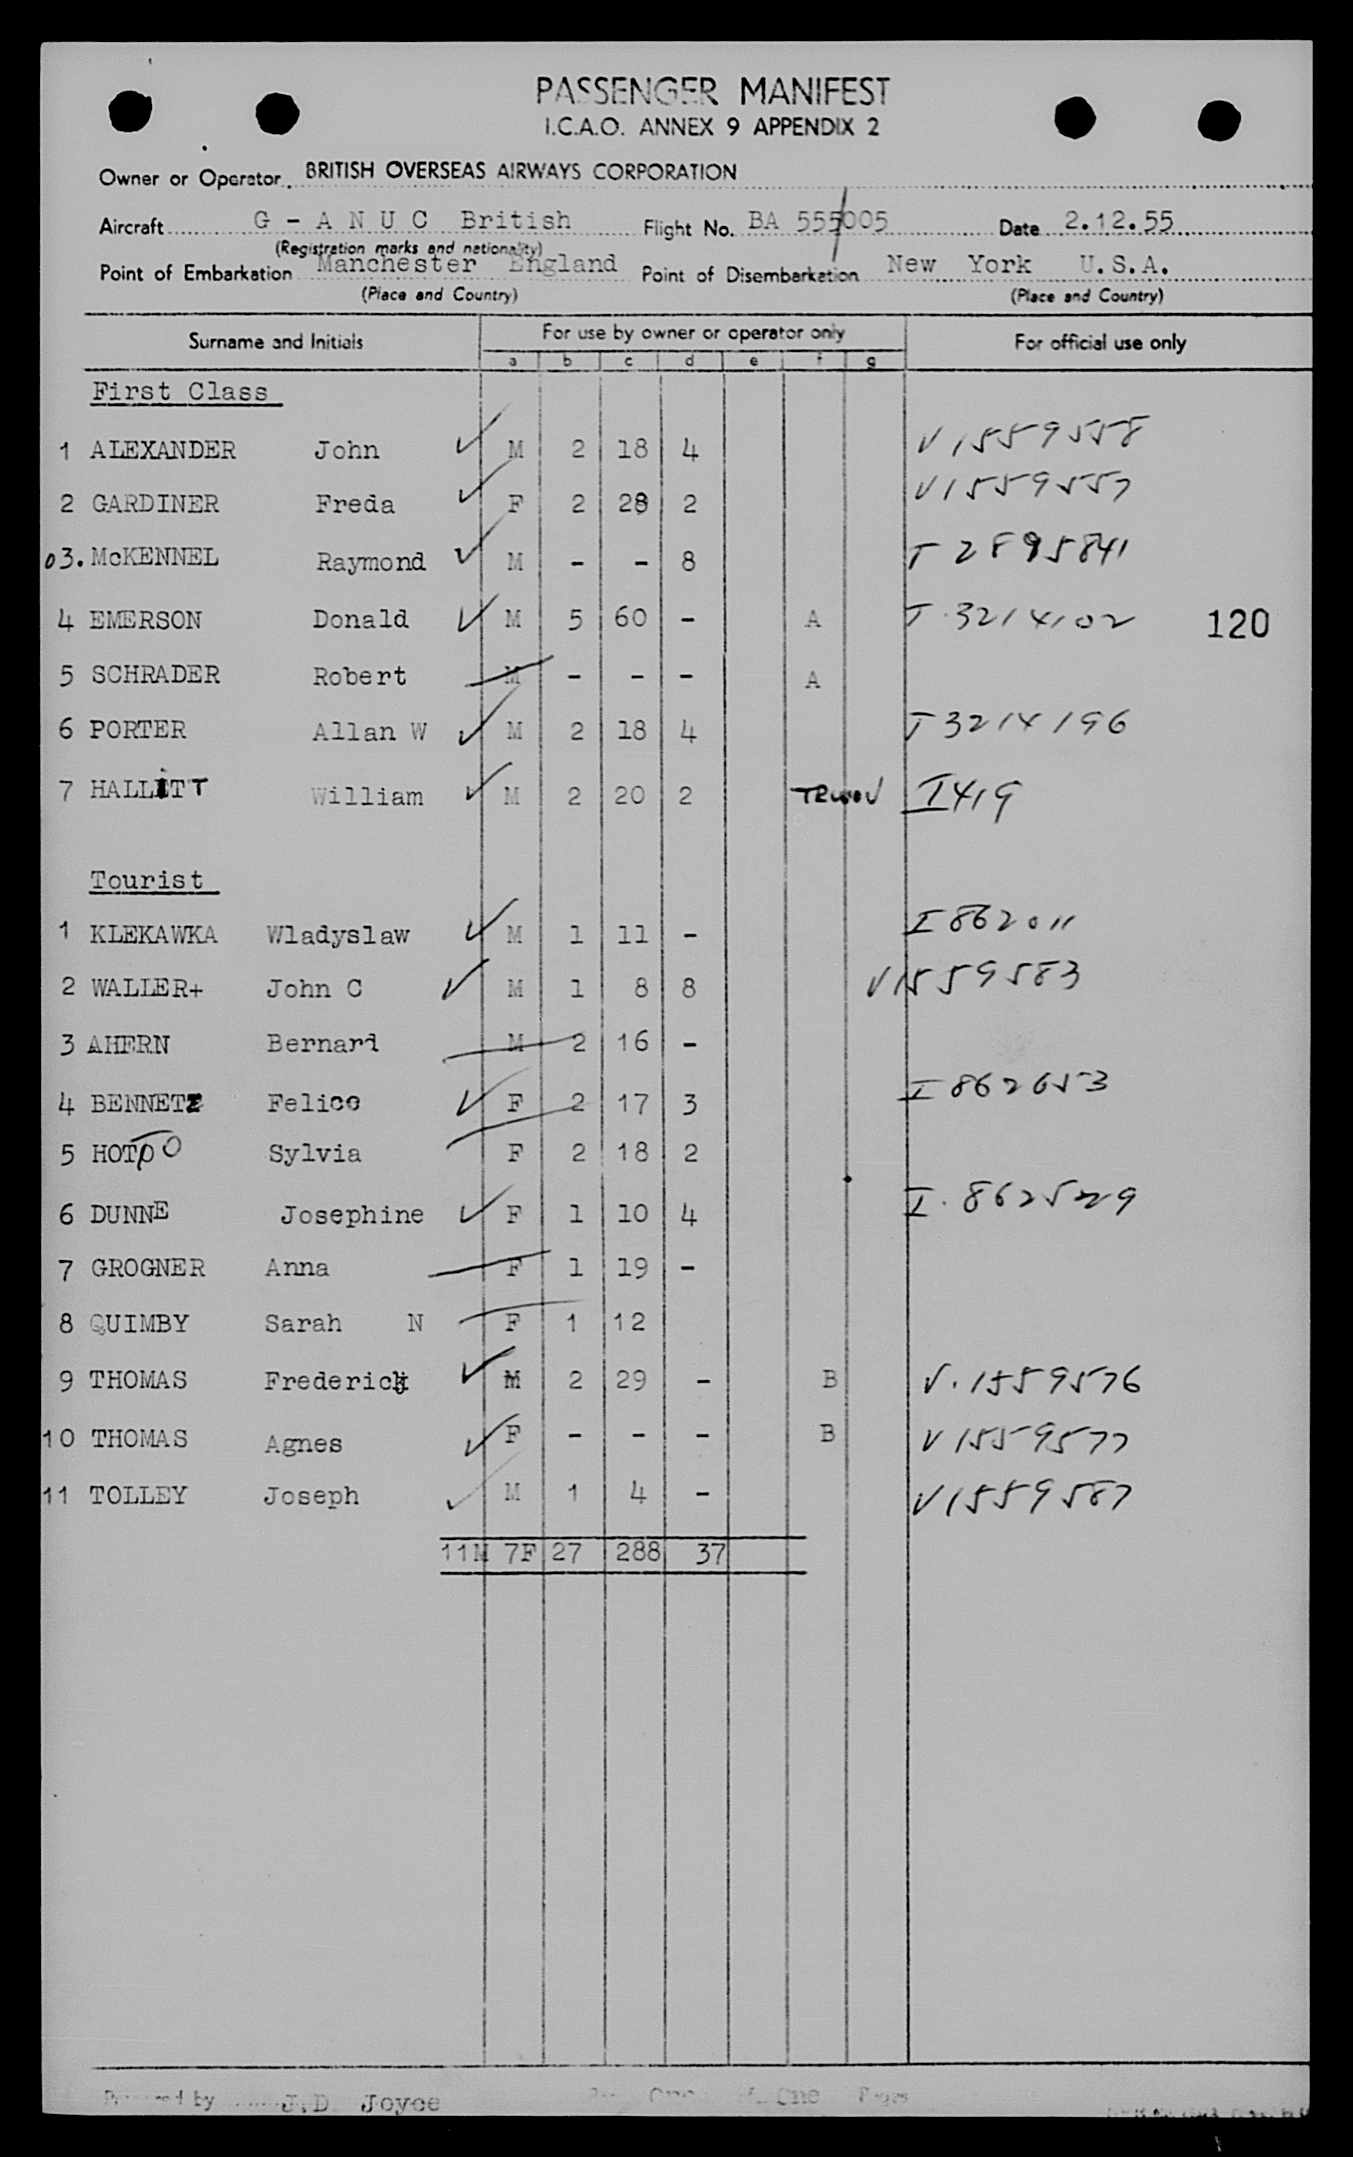 PASSENGER MANIFEST
I.C.A.O. ANNEX 9 APPENDIX 2
Owner or Operator BRITISH OVERSEAS AIRWAYS CORPORATION
Aircraft G - A N U C British Flight No. BA 555/005 Date 2.12.55
(Registration marks and nationality)
Point of Embarkation Manchester England Point of Disembarkation New York U.S.A.
(Place and Country) (Place and Country)
Surname and Initials For use by owner or operator only For official use only
a b c d e f g
First Class
1 ALEXANDER John ✓ M 2 18 4 V1559558
2 GARDINER Freda ✓ F 2 28 2 V1559557
03. McKENNEL Raymond ✓ M - - 8 T 2895841
4 EMERSON Donald ✓ M 5 60 - A T.3214102 120
5 SCHRADER Robert M - - - A
6 PORTER Allan W ✓ M 2 18 4 T3214196
7 HALLITT William ✓ M 2 20 2 I419
Tourist
1 KLEKAWKA Wladyslaw ✓ M 1 11 - I862011
2 WALLER+ John C ✓ M 1 8 8 V1559583
3 AHERN Bernard M 2 16 -
4 BENNETZ Felice ✓ F 2 17 3 I862653
5 Sylvia F 2 18 2
6 DUNNE Josephine ✓ F 1 10 4 I.862529
7 GROGNER Anna F 1 19 -
8 QUIMBY Sarah N F 1 12
9 THOMAS Frederick ✓ M 2 29 - B V.1559576
10 THOMAS Agnes ✓ F - - - B V1559577
11 TOLLEY Joseph ✓ M 1 4 - V1559587
11M 7F 27 288 37
by J.D. Joyce One